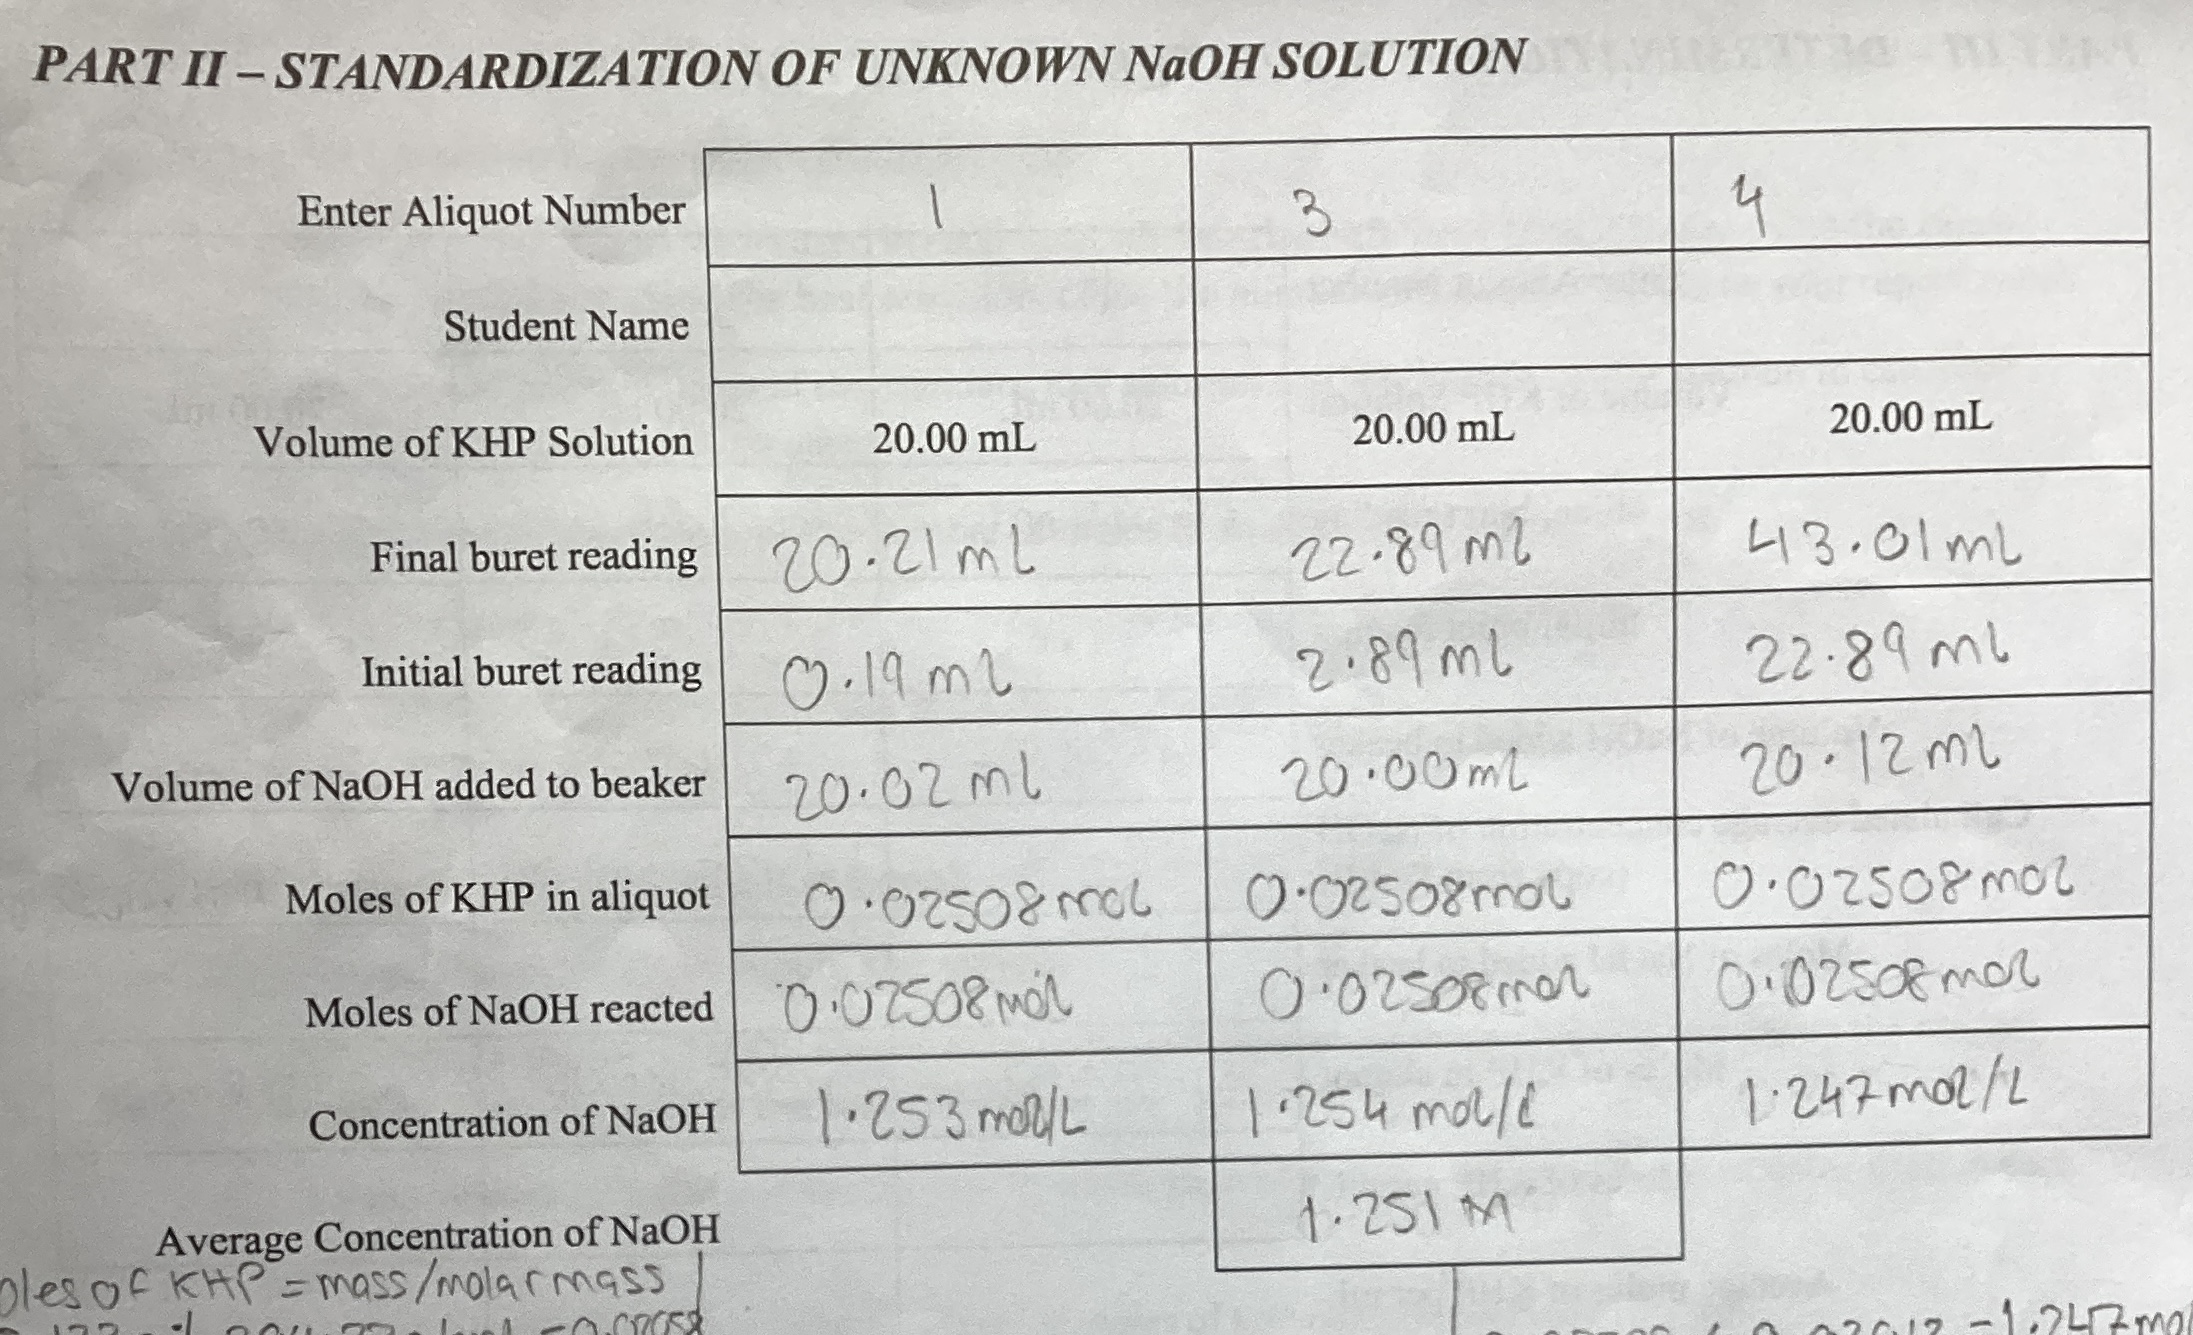 PART II – STANDARDIZATION OF UNKNOWN NaOH SOLUTION
Enter Aliquot Number 1 3 4
Student Name
Volume of KHP Solution 20.00 mL 20.00 mL 20.00 mL
Final buret reading 20.21 ml 22.89 ml 43.01 ml
Initial buret reading 0.19 ml 2.89 ml 22.89 ml
Volume of NaOH added to beaker 20.02 ml 20.00 ml 20.12 ml
Moles of KHP in aliquot 0.02508 mol 0.02508 mol 0.02508 mol
Moles of NaOH reacted 0.02508 mol 0.02508 mol 0.02508 mol
Concentration of NaOH 1.253 mol/L 1.254 mol/L 1.247 mol/L
Average Concentration of NaOH 1.251 M
oles of KHP = mass/molar mass
= 1.247 mol